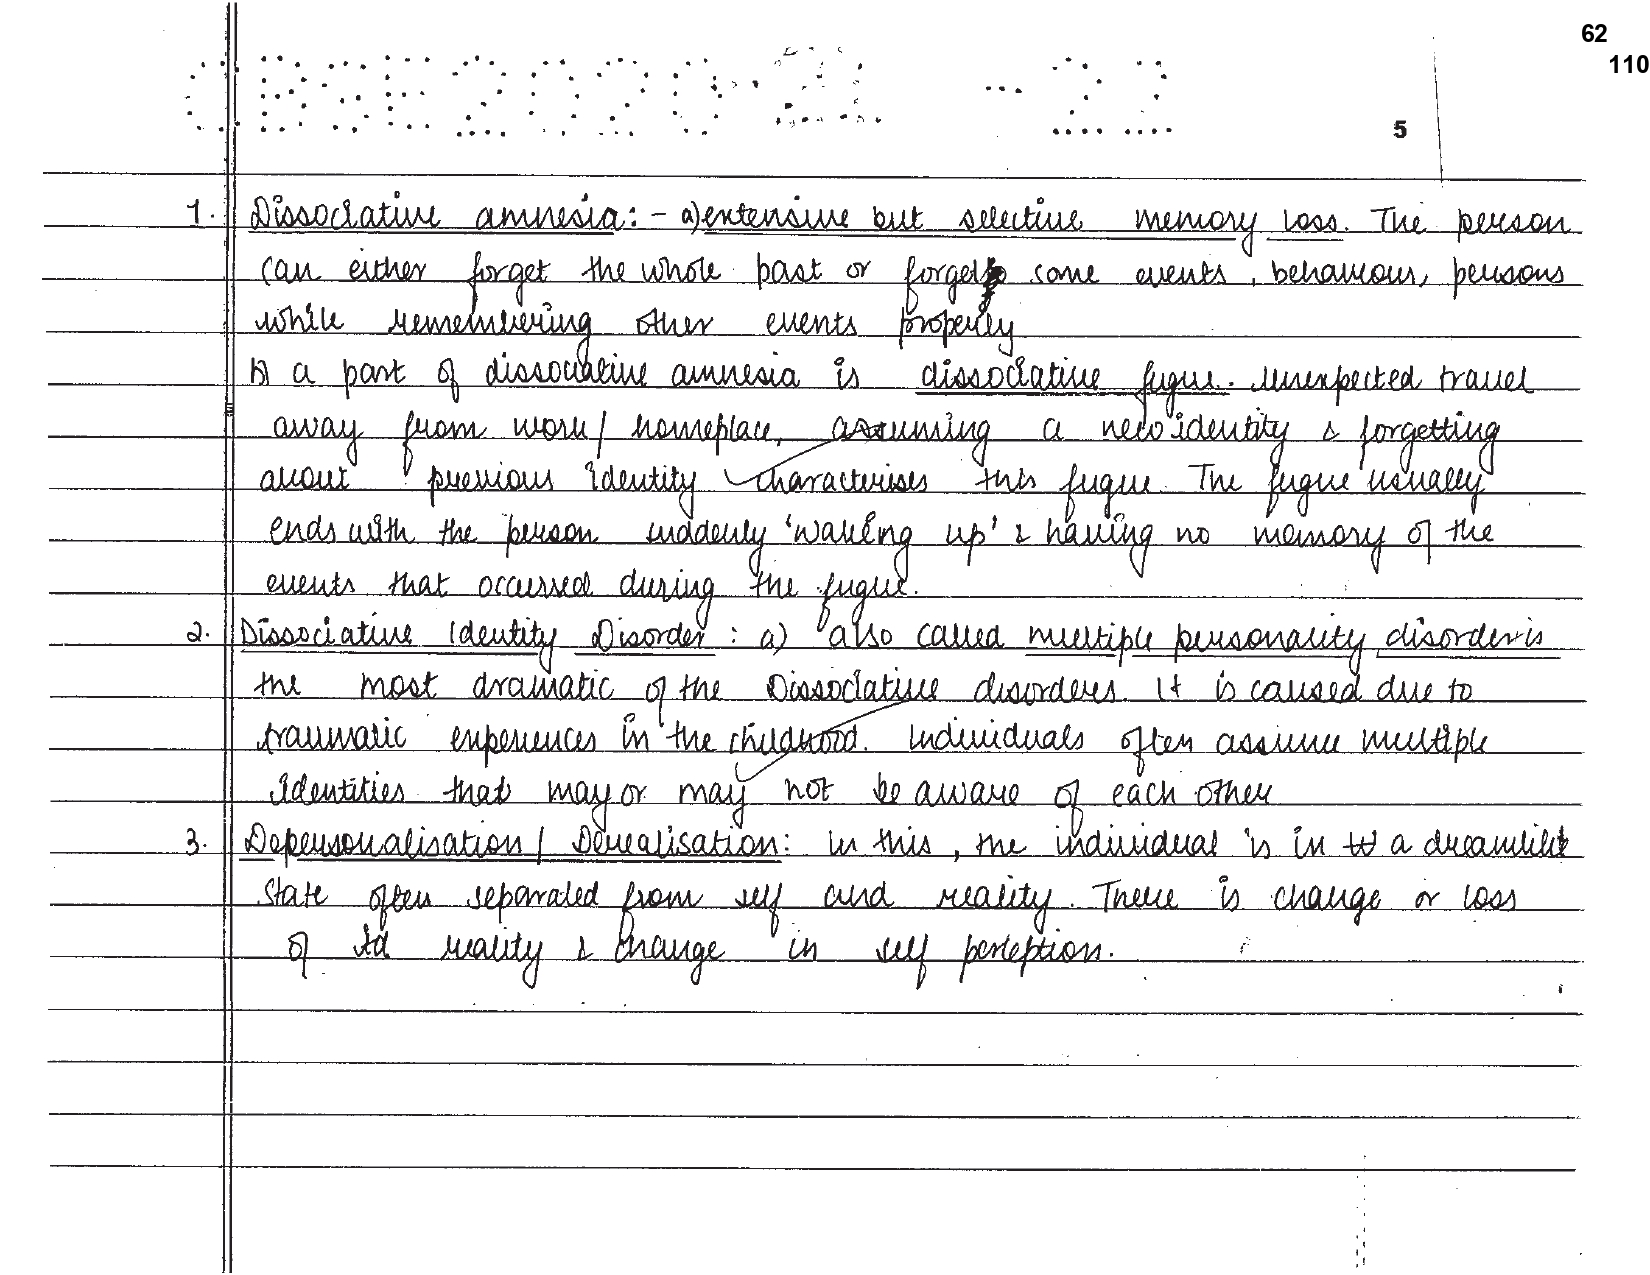 62
110
CBSE2020-21 -22
5
1. Dissociative amnesia: - a) extensive but selective memory loss. The person
can either forget the whole past or forget some events, behaviours, persons
while remembering other events properly
b) a part of dissociative amnesia is dissociative fugue. Unexpected travel
away from work/ homeplace, assuming a new identity & forgetting
about previous identity characterises this fugue. The fugue usually
ends with the person suddenly 'waking up' & having no memory of the
events that occurred during the fugue.
2. Dissociative Identity Disorder : a) also called multiple personality disorder is
the most dramatic of the Dissociative disorders. It is caused due to
traumatic experiences in the childhood. Individuals often assume multiple
identities that may or may not be aware of each other
3. Depersonalisation / Derealisation: In this, the individual is in a dreamlike
state often separated from self and reality. There is change or loss
of reality & change in self perception.